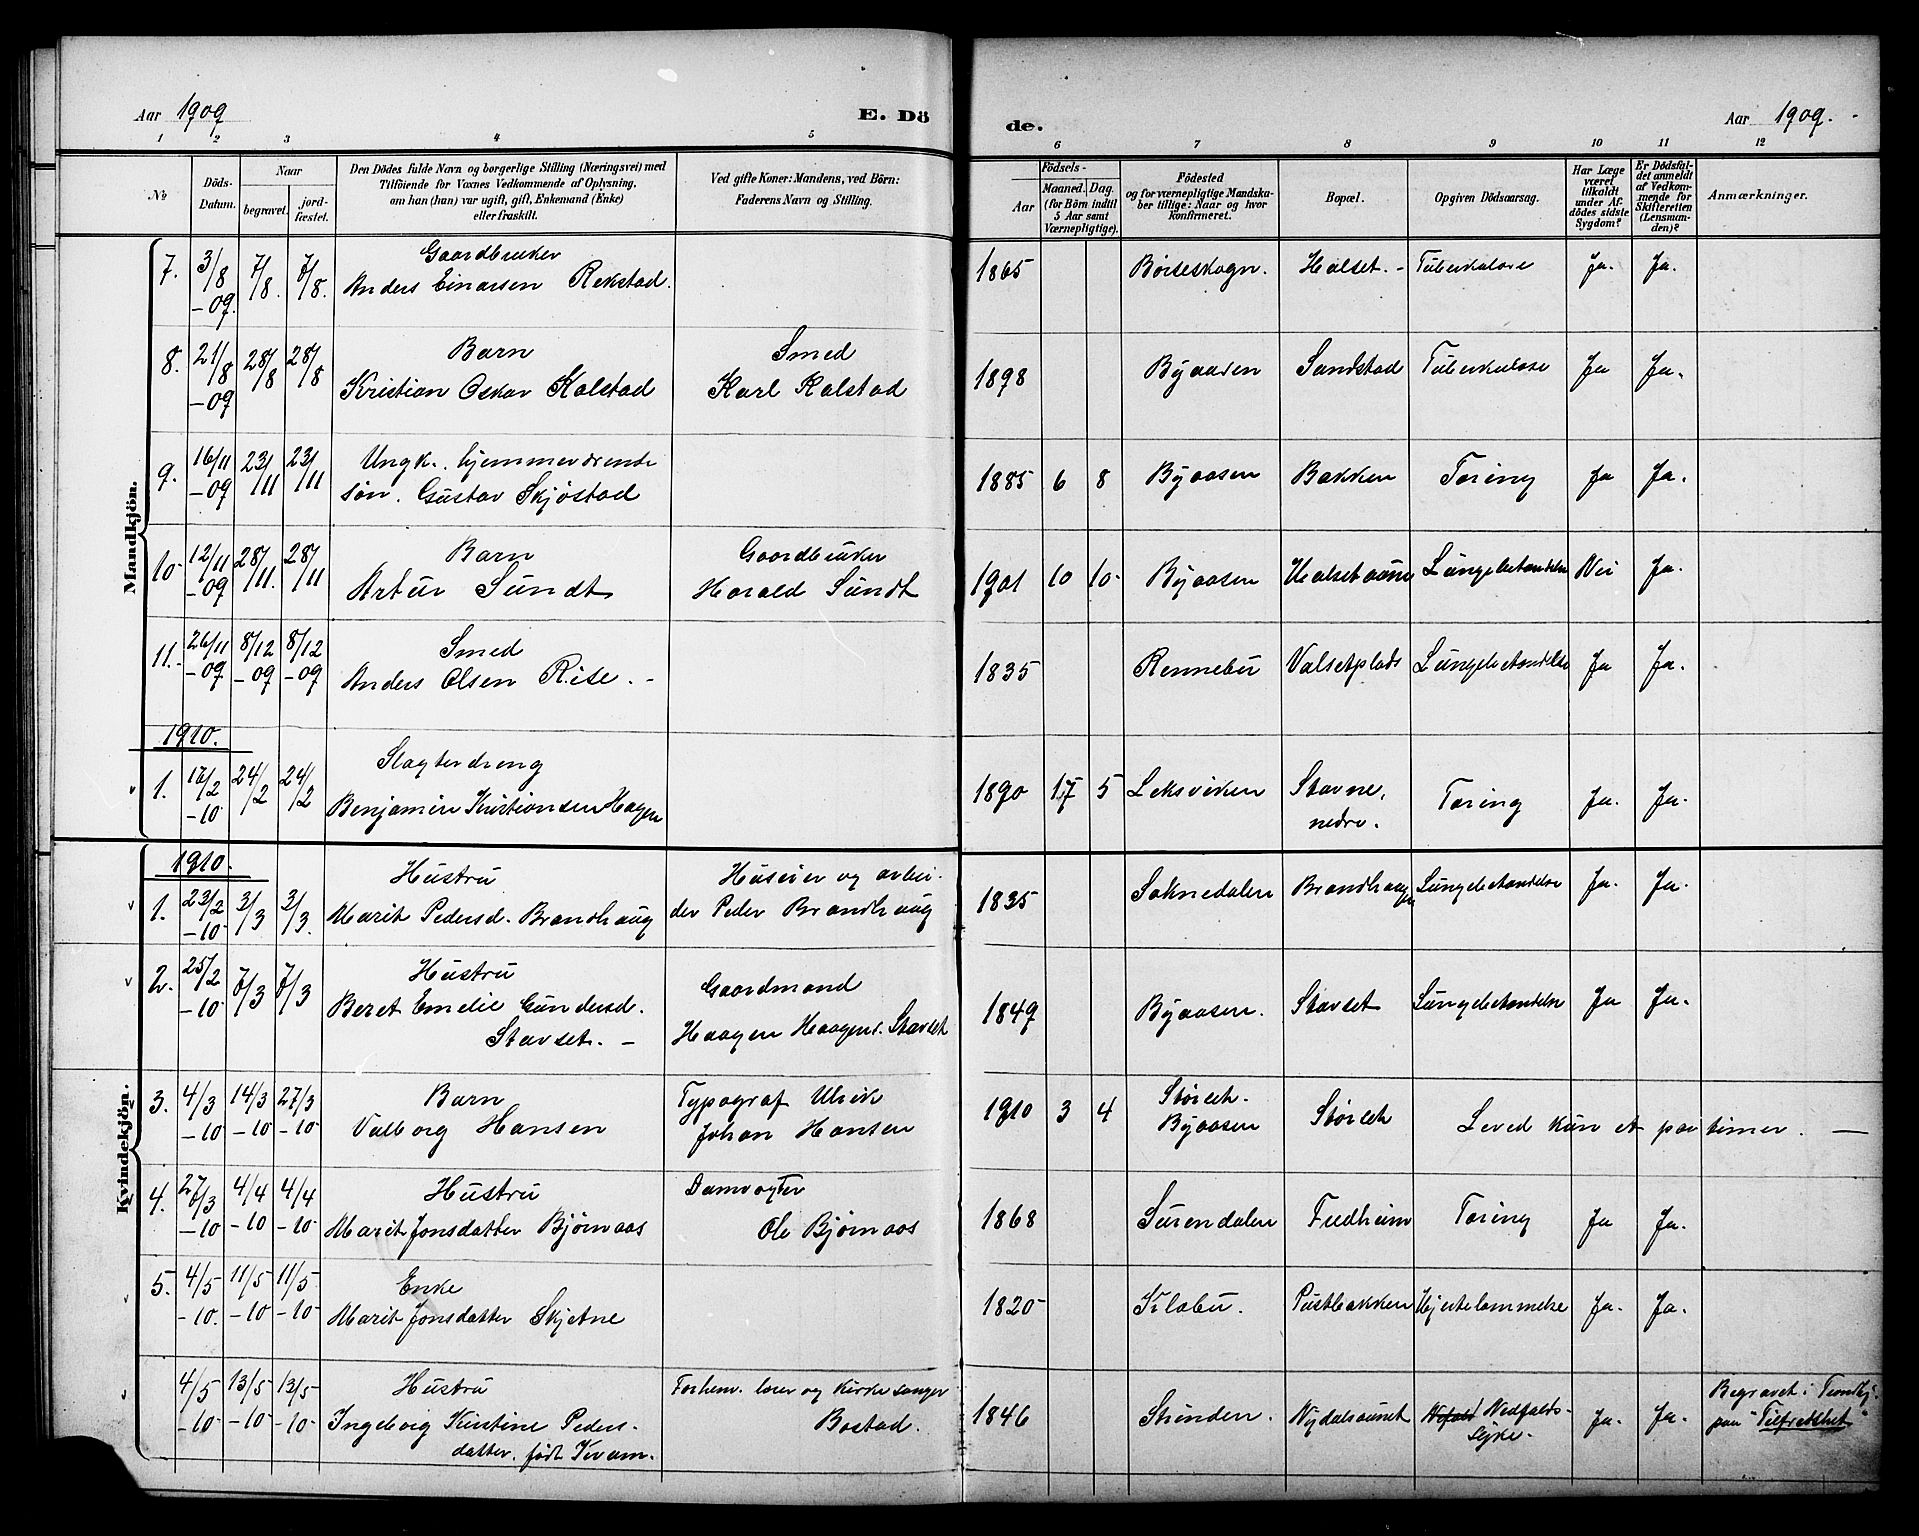 Aar 1909
E. Dö
de.
Aar 1909.
1 2 3 4 5 6 7 8 9 10 11 12
No
Döds-Datum.
Naar
begravet.
jord-fæstet.
Den Dödes fulde Navn og borgerlige Stilling (Næringsvei) med
Tilföiende for Voxnes Vedkommende af Oplysning,
om han (hun) var ugift, gift, Enkemand (Enke)
eller fraskilt.
Ved gifte Koner: Mandens, ved Börn:
Faderens Navn og Stilling.
Födsels-
Aar
Maaned. Dag.
(for Börn indtil
5 Aar samt
Værnepligtige).
Födested
og for værnepligtige Mandska-
ber tillige: Naar og hvor
konfirmeret.
Bopæl.
Opgiven Dödsaarsag.
Har Læge
været
tilkaldt
under Af-
dödes sidste
Sygdom?
Er Dödsfal-
det anmeldt
af Vedkom-
mende for
Skifteretten
(Lensman-
den)?
Anmærkninger.
Mandkjön.
7. 3/8 -09. 7/8. 7/8. Gaardbruker
Anders Einarsen Rekstad. 1865 Børseskogn. Halset. - Tuberkulose Ja. Ja.
8. 21/8 -09 28/8 28/8 Barn
Kristian Oskar Kolstad Smed
Karl Kolstad 1898 Byaasen Sundstad Tuberkulose Ja Ja.
9. 16/11 -09 23/11 23/11 Ungk. hjemmeværende
søn. Gustav Skjøstad 1885 6 8 Byaasen Bakken Tæring Ja Ja.
10 12/11 -09 28/11. 28/11 Barn
Artur Sundt Gaardbruker
Harald Sundt 1901 10 10. Byaasen Halsetaune Lungebetændelse Nei Ja.
11. 26/11 -09 8/12 -09 8/12 -09 Smed
Anders Olsen Rise. - 1835 Rennebu Valsetplads Lungebetændelse Ja Ja.
1910.
1. 16/2 -10 24/2 24/2 Slagterdreng
Benjamin Kristiansen Hagen 1890 17 5 Leksviken Stavne,
nedre. Tæring Ja. Ja.
Kvindekjön.
1910.
1. 23/2 -10 3/3 3/3. Hustru
Marit Pedersd. Brandhaug Huseier og arbei-
der Peder Brandhaug 1835 Soknedalen Brandhaugen Lungebetændelse Ja. Ja.
2. 25/2 -10 7/3 7/3 Hustru
Beret Emelie Gundersd.
Stavset. - Gaardmand
Haagen Haagens. Stavset 1849 Byaasen. Stavset Lungebetændelse Ja Ja.
3. 4/3 -10 14/3 -10 27/3 -10 Barn
Valborg Hansen Typograf Ulrik
Johan Hansen 1910 3 4 Størseth.
Byaasen Størseth Leved kun et par timer. —
4. 27/3 -10 4/4 -10 4/4 -10 Hustru
Marit Jonsdatter Bjørnaas Damvogter
Ole Bjørnaas 1868 Surendalen Fredheim Tæring Ja Ja.
5. 4/5 -10. 11/5 -10 11/5 -10 Enke
Marit Jonsdatter Skjetne 1820 Klæbu. Pustbakken Hjertelammelse Ja. Ja.
4/5 -10 13/5 -10 13/5 -10 Hustru
Ingeborg Kirstine Peders-
datter, født Kvam. Forhenv. lærer og kirkesanger
Bostad. 1846 Strinden. Nydalsaunet Nedfalds-
syke. Ja. Ja. Begravet i Trondhj.
paa "Tilfredshet"